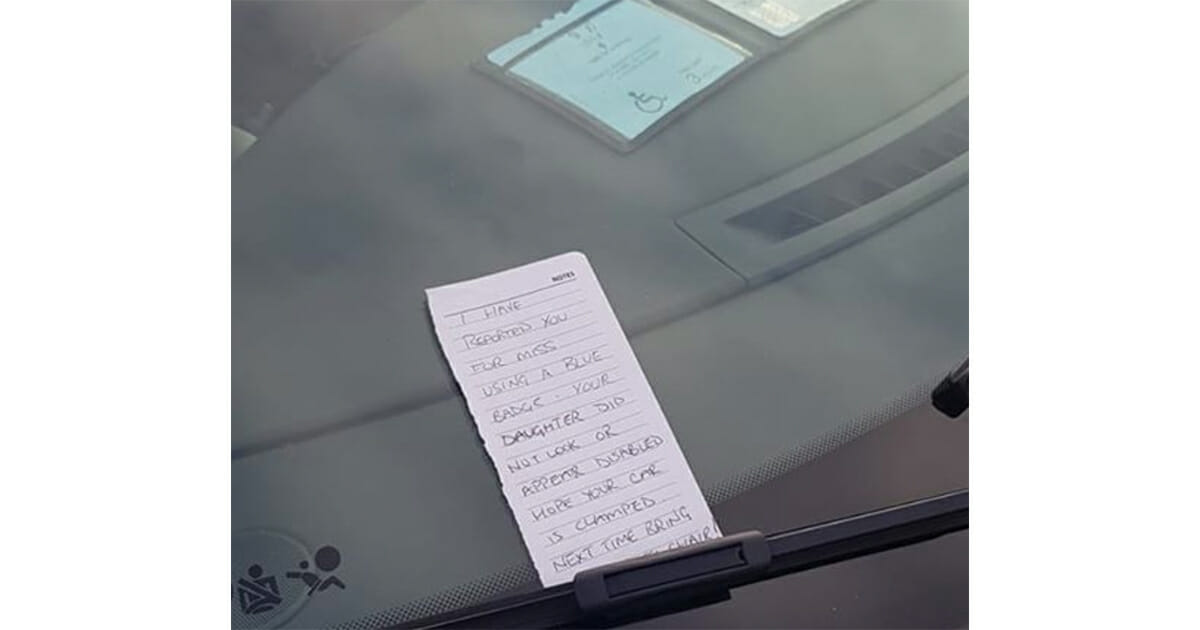 NOTES
I HAVE
REPORTED YOU
FOR MISS
USING A BLUE
BADGE. YOUR
DAUGHTER DID
NOT LOOK OR
APPEAR DISABLED
HOPE YOUR CAR
IS CLAMPED
NEXT TIME BRING
CHAIR!